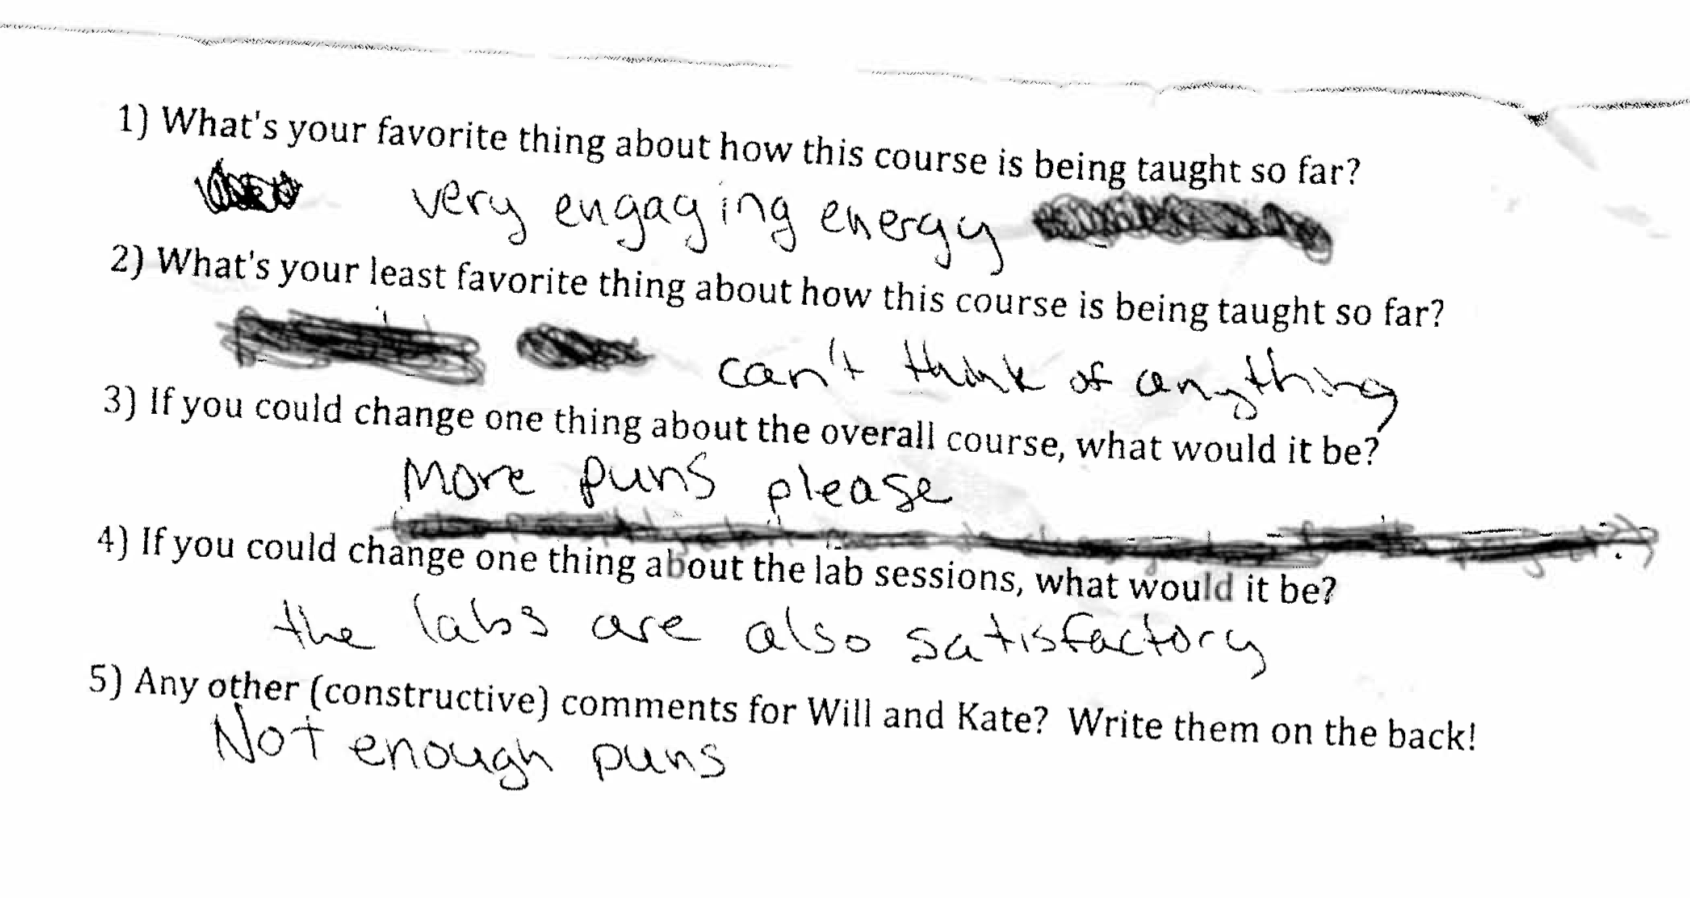 1) What's your favorite thing about how this course is being taught so far?
very engaging energy
2) What's your least favorite thing about how this course is being taught so far?
can't think of anything
3) If you could change one thing about the overall course, what would it be?
More puns please
4) If you could change one thing about the lab sessions, what would it be?
the labs are also satisfactory
5) Any other (constructive) comments for Will and Kate? Write them on the back!
Not enough puns